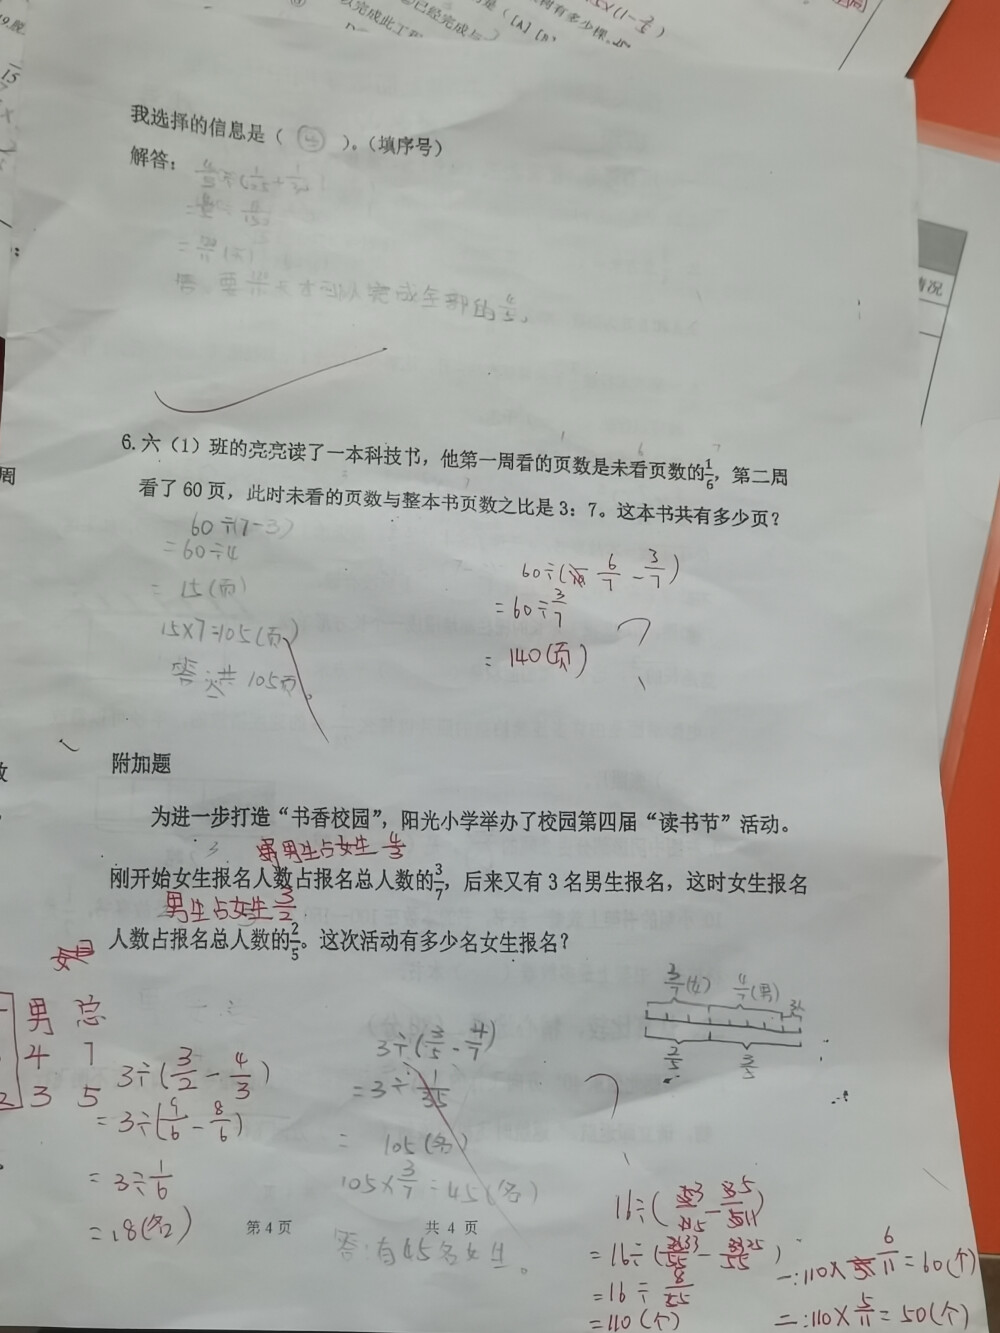 我选择的信息是（ ）。（填序号）
解答：
答：要 天才可以完成全部的4/5。
6. 六（1）班的亮亮读了一本科技书，他第一周看的页数是未看页数的1/6，第二周
看了 60 页，此时未看的页数与整本书页数之比是 3：7。这本书共有多少页？
60÷(7-3)
=60÷4
= 15(页)
15×7=105(页)
答：共 105页。
60÷(6/7-3/7)
=60÷3/7
= 140(页)
附加题
为进一步打造“书香校园”，阳光小学举办了校园第四届“读书节”活动。
男生占女生4/3
刚开始女生报名人数占报名总人数的3/7，后来又有 3 名男生报名，这时女生报名
男生占女生3/2
人数占报名总人数的2/5。这次活动有多少名女生报名？
3/7(女) 4/7(男)
2/5 3/5
男 总
4 7
3 5
3÷(3/2-4/3)
=3÷(9/6-8/6)
=3÷1/6
=18(名)
3÷(3/5-4/7)
=3÷1/35
= 105(名)
105×3/7=45(名)
答：有45名女生。
第 4 页 共 4 页
16÷(
=16÷(33/55-25/55)
=16÷8/55
=110(个)
一:110×6/11=60(个)
二:110×5/11=50(个)